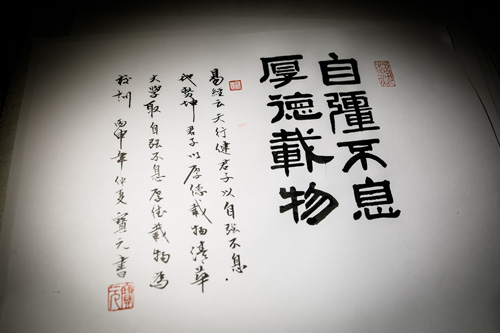 自彊不息
厚德載物
易經云天行健君子以自强不息.
地势坤君子以厚德載物清華
大學取自强不息厚德載物為
校訓 丙申年仲夏 寶元書